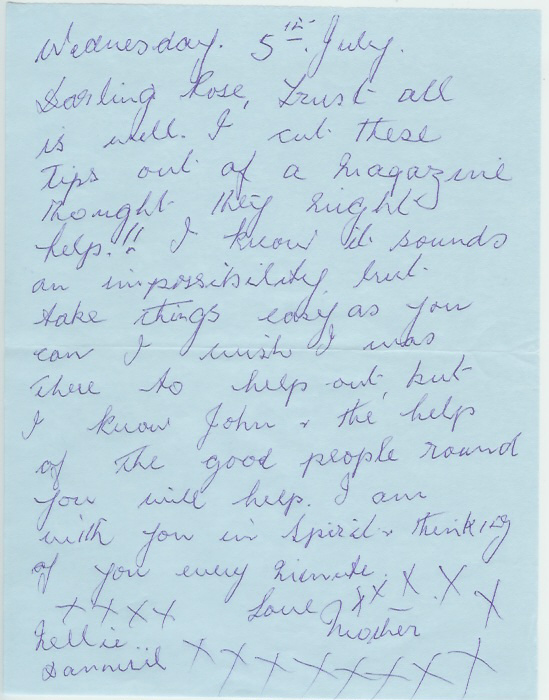 Wednesday. 5th July.
Darling Rose, Trust all
is well. I cut these
tips out of a magazine
thought they might
help.!! I know it sounds
an impossibility, but
take things easy as you
can I wish I was
there to help out, but
I know John & the help
of the good people round
you will help. I am
with you in Spirit & thinking
of you every minute. x x X X X
X X X X Love Mother
Nellie
X X X X X X X X